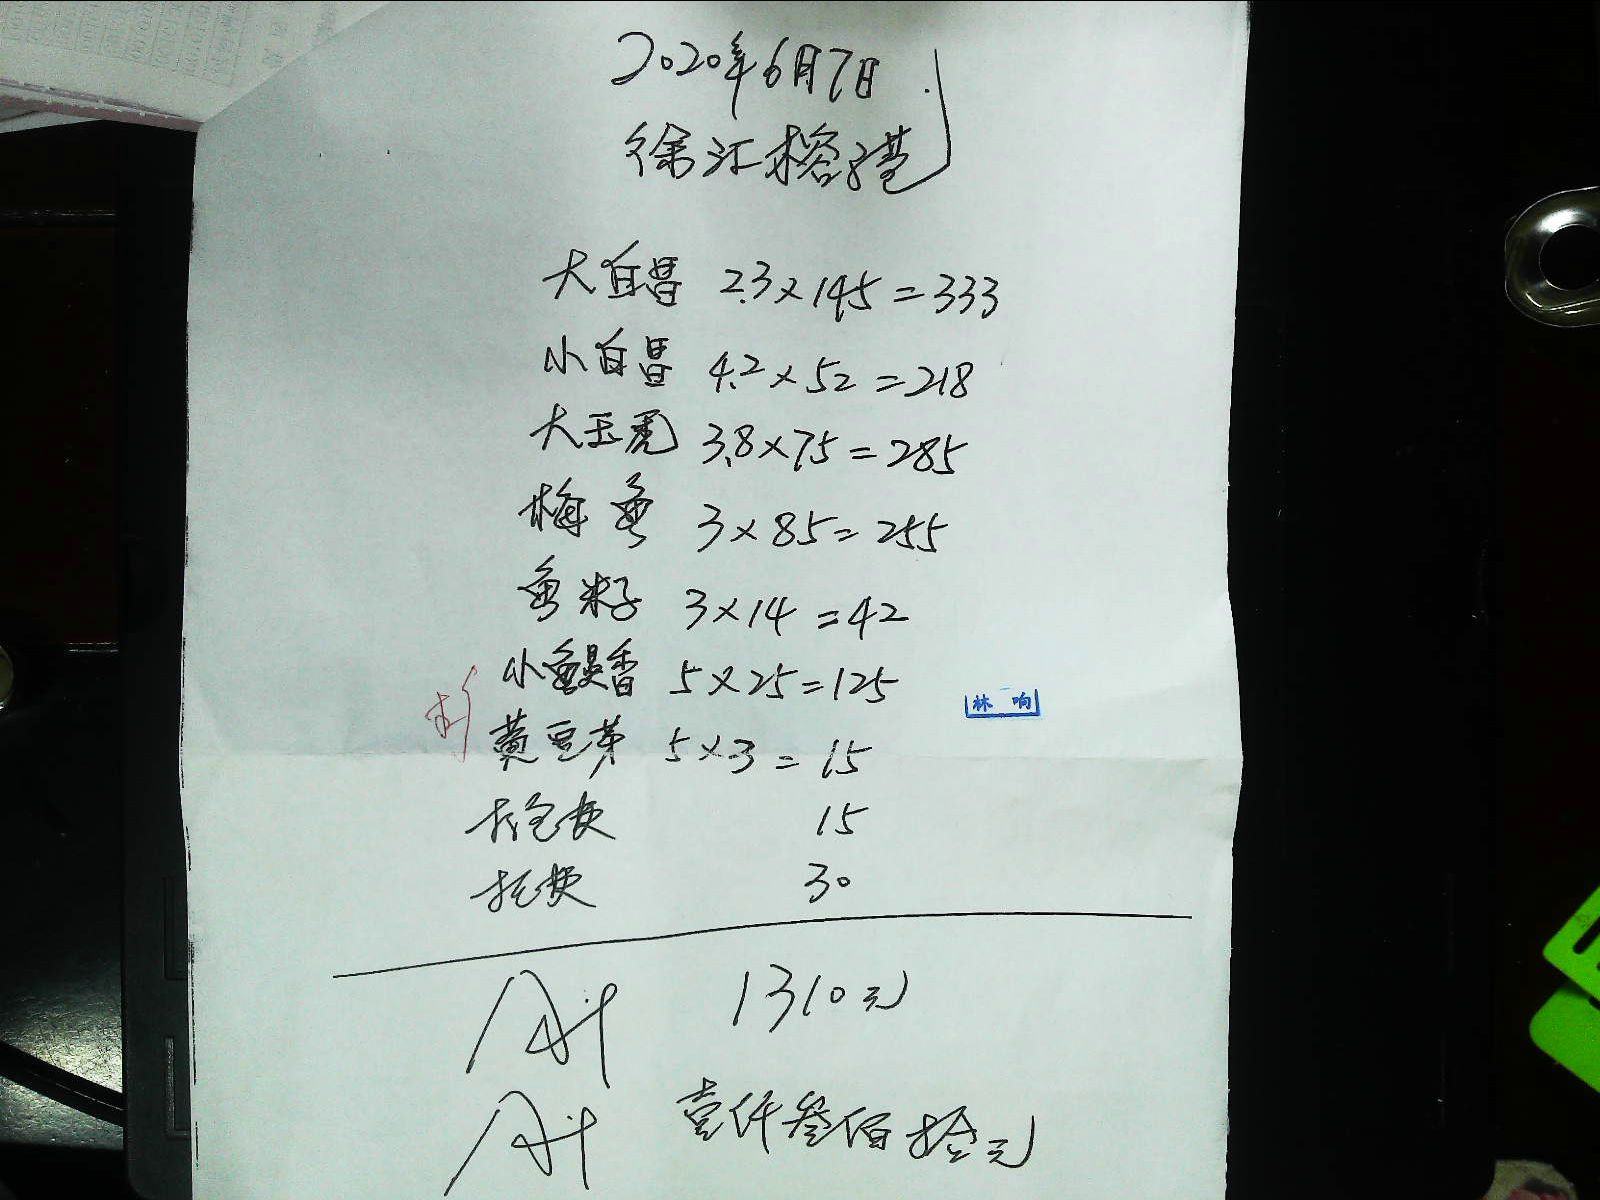 2020年6月7日
徐汇榕港
大白昌 2.3×145=333
小白昌 4.2×52=218
大玉秃 3.8×75=285
梅鱼 3×85=255
鱼籽 3×14=42
小鳗香 5×25=125
林响
黄豆芽 5×3=15
打包费 15
托费 30
合计 1310元
合计 壹仟叁佰拾元